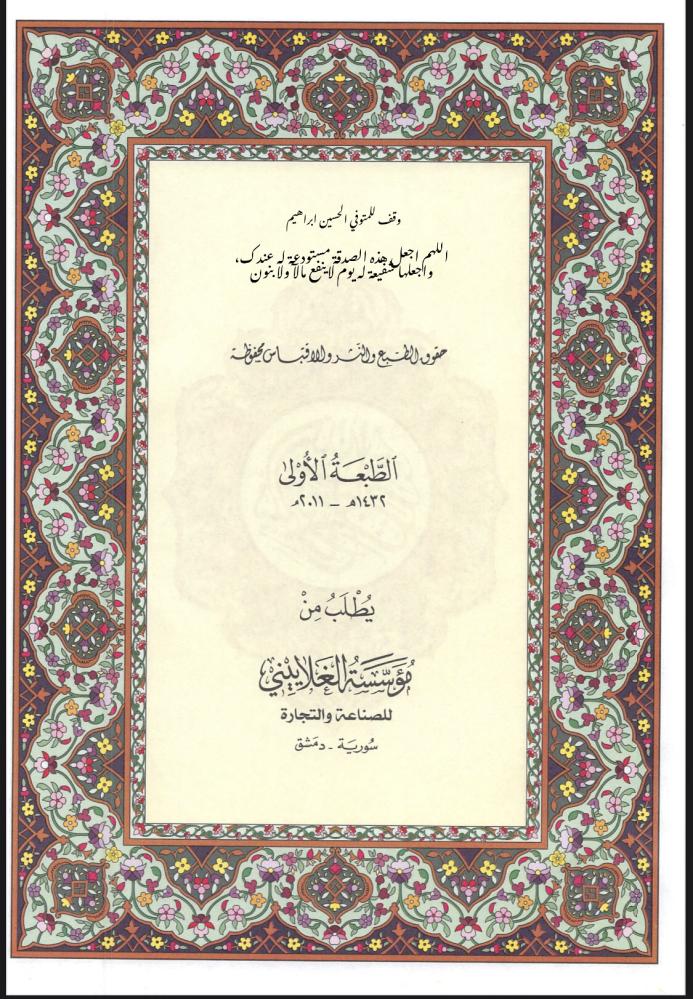 وقف للمتوفي الحسين ابراهيم
اللهم اجعل هذه الصدقة مستودعة له عندك،
واجعلها شفيعة له يوم لا ينفع مالاً ولا بنون
حقوق الطبع والنشر والاقتباس محفوظة
الطَّبْعَةُ الأُوْلىٰ
١٤٣٢هـ - ٢٠١١م
يُطْلَبُ مِنْ
مُؤَسَّسَةُ الغلاييني
للصناعة والتجارة
سُورِيَة - دِمَشق